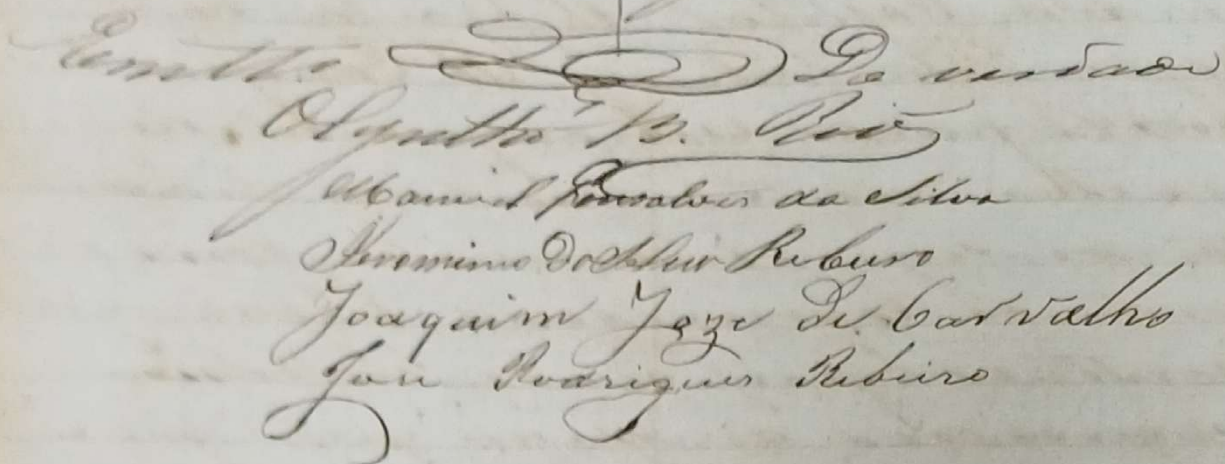 Em testo Da verdade
Olyntho B. Rios
Manoel Gonsalves da Silva
Jeronimo Ribeiro
Joaquim Joze de Carvalho
Jose Rodrigues Ribeiro